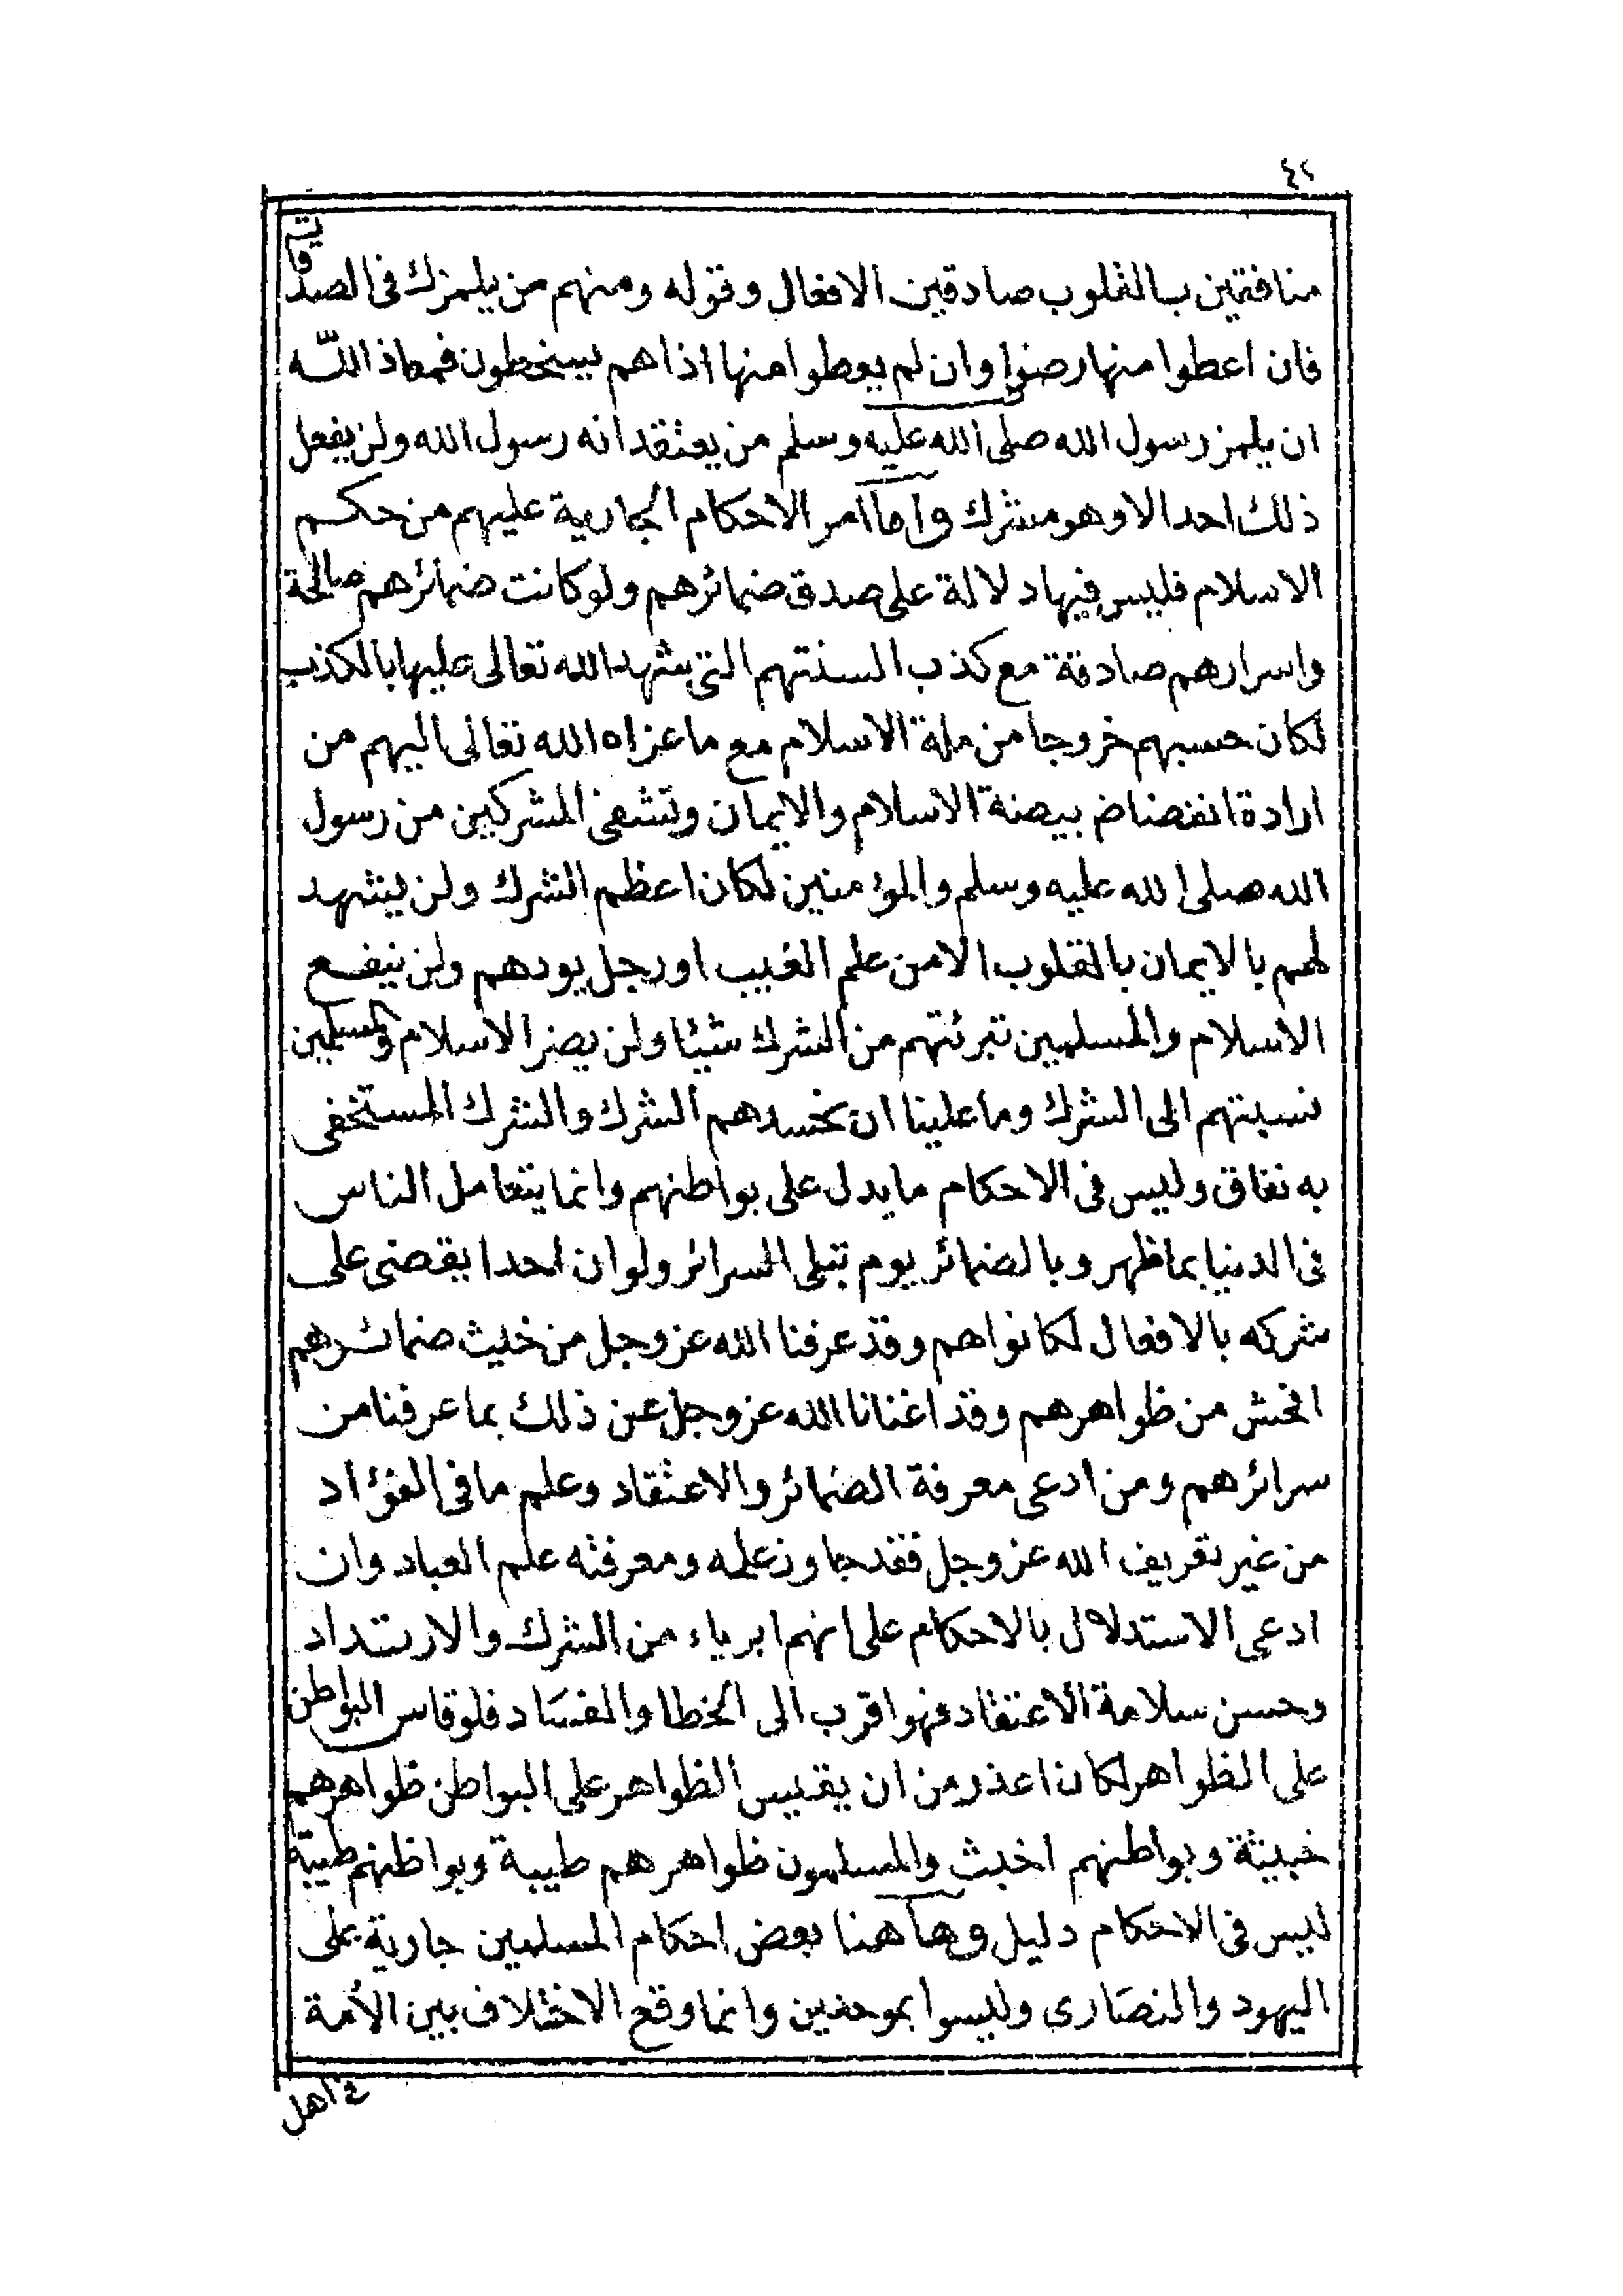 ٤٢
منافقين بالقلوب صادقين الافعال وقوله ومنهم من يلمزك في الصدقات
فان اعطوا منها رضوا وان لم يعطوا منها اذا هم يسخطون فمعاذ الله
ان يلمز رسول الله صلى الله عليه وسلم من يعتقد انه رسول الله ولن يفعل
ذلك احد الا وهو مشرك واما امر الاحكام الجارية عليهم من حكم
الاسلام فليس فيها دلالة على صدق ضمائرهم ولو كانت ضمائرهم صالحة
واسرارهم صادقة مع كذب السنتهم التي شهد الله تعالى عليها بالكذب
لكان حسبهم خروجا من ملة الاسلام مع ما عزاه الله تعالى اليهم من
ارادة انفضاض بيضة الاسلام والايمان وتشفي المشركين من رسول
الله صلى الله عليه وسلم والمؤمنين لكان اعظم الشرك ولن يشهد
لهم بالايمان بالقلوب الا من علم الغيب او رجل يودهم ولن ينفع
الاسلام والمسلمين تبرئتهم من الشرك شيئا ولن يضر الاسلام والمسلمين
نسبتهم الى الشرك وما علينا ان نحسدهم الشرك والشرك المستخفى
به نفاق وليس في الاحكام ما يدل على بواطنهم وانما يتعامل الناس
في الدنيا بما ظهر وبالضمائر يوم تبلى السرائر ولو ان احدا يقضى على
شركه بالافعال لكانوا هم وقد عرفنا الله عز وجل من خبث ضمائرهم
افحش من ظواهرهم وقد اغنانا الله عز وجل عن ذلك بما عرفنا من
سرائرهم ومن ادعى معرفة الضمائر والاعتقاد وعلم ما في الفؤاد
من غير تعريف الله عز وجل فقد جاوز علمه ومعرفته علم العباد وان
ادعى الاستدلال بالاحكام على انهم ابرياء من الشرك والارتداد
وحسن سلامة الاعتقاد فهو اقرب الى الخطا والفساد فلو قاس البواطن
على الظواهر لكان اعذر من ان يقيس الظواهر على البواطن ظواهرهم
خبيثة وبواطنهم اخبث والمسلمون ظواهرهم طيبة وبواطنهم طيبة
ليس في الاحكام دليل وها هنا بعض احكام المسلمين جارية على
اليهود والنصارى وليسوا بموحدين وانما وقع الاختلاف بين الأمة
اهل